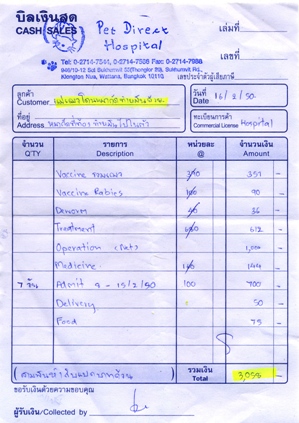 บิลเงินสด
CASH SALES
Pet Direct
Hospital
เล่มที่
เลขที่
Tel: 0-2714-7541, 0-2714-7588 Fax: 0-2714-7988
Klongton Nua, Wattana, Bangkok 10110
เลขประจำตัวผู้เสียภาษี
ลูกค้า
Customer
วันที่
Date 16/2/50
ที่อยู่
Address
ทะเบียนการค้า
Commercial License Hospital
จำนวน รายการ หน่วยละ จำนวนเงิน
Q'TY Description @ Amount
Vaccine รวมแมว 390 351 -
Vaccine Rabies 100 90 -
Deworm 40 36 -
Treatment 680 612 -
Operation 1,000 -
Medicine 160 144 -
7 วัน Admit 9 - 15/2/50 100 700 -
Delivery 50 -
Food 75 -
รวมเงิน
Total 3,058 -
ขอรับเงินด้วยความขอบคุณ
ผู้รับเงิน/Collected by